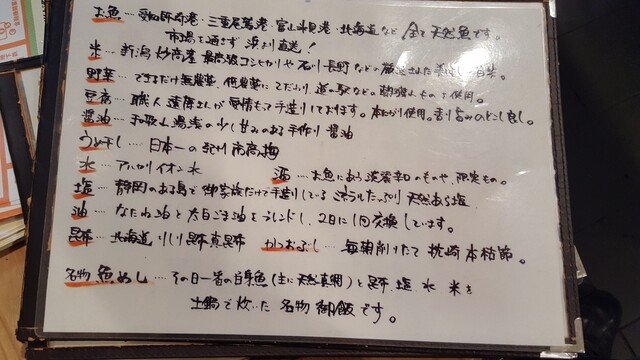 お魚…愛知師崎港・三重尾鷲港・富山氷見港・北海道など 全て天然魚です。
市場を通さず 浜より直送!
米…新潟 妙高産 最高級コシヒカリや石川 長町などの厳選された
野菜…できるだけ無農薬、低農薬にこだわり、道の駅などの 使用。
豆腐…職人 遠藤さんが愛情もって手造りしております。本にがり使用。香り旨みのどこし良し。
醤油…和歌山湯浅の少し甘みのある手作り醤油
うめ干し…日本一の紀州南高梅
水…アルカリイオン水 酒…お魚にあう淡麗辛口のものや、限定もの。
塩…静岡のある島で御家族だけで手造りしているミネラルたっぷり天然あら塩
油…なたね油と太白ごま油をブレンドし、2日に1回交換しています。
昆布…北海道 りしり昆布真昆布 かつおぶし…毎朝削りたて 枕崎本枯節。
名物 魚めし…その日一番の白身魚(主に天然真鯛)と昆布、塩 水 米を
土鍋で炊いた 名物御飯です。